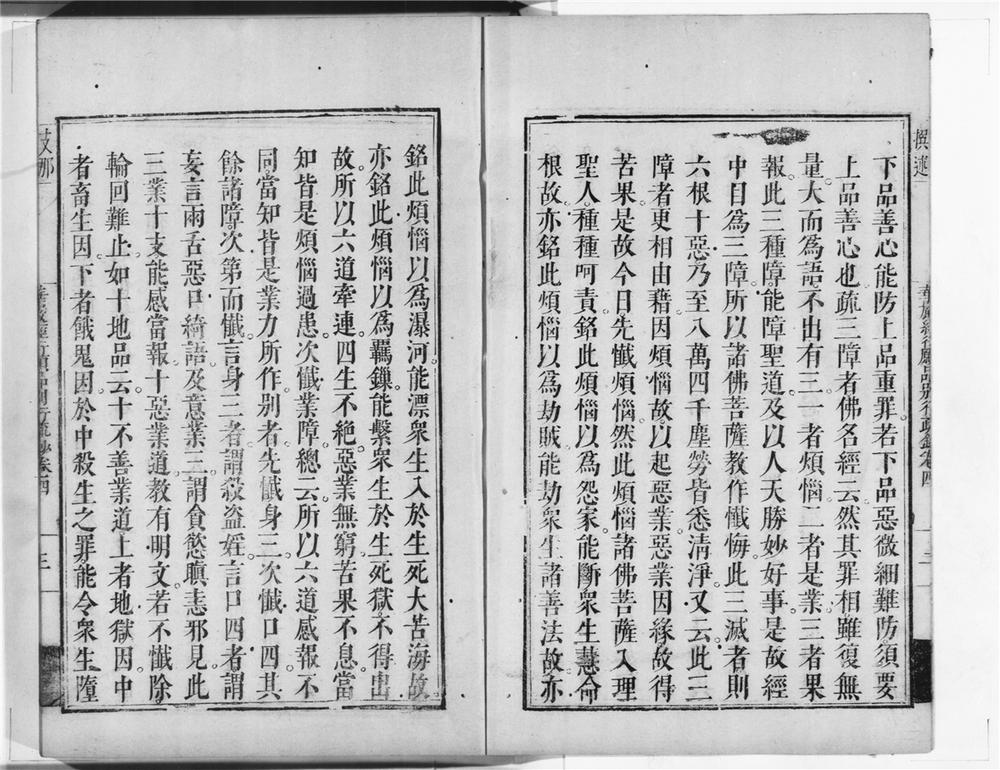 下品善心能防上品重罪若下品惡微細難防須要
上品善心也疏三障者佛名經云然其罪相雖復無
量大而為語不出有三一者煩惱二者是業三者果
報此三種障能障聖道及以人天勝妙好事是故經
中目爲三障所以諸佛菩薩教作懺悔此三滅者則
六根十惡乃至八萬四千塵勞皆悉清淨又云此三
障者更相由藉因煩惱故以起惡業惡業因緣故得
苦果是故今日先懺煩惱然此煩惱諸佛菩薩入理
聖人種種呵責銘此煩惱以爲怨家能斷衆生慧命
根故亦銘此煩惱以爲劫賊能劫衆生諸善法故亦
銘此煩惱以爲瀑河能漂衆生入於生死大苦海故
亦銘此煩惱以爲羈鏁能繫衆生於生死獄不得出
故所以六道牽連四生不絶惡業無窮苦果不息當
知皆是煩惱過患次懺業障總云所以六道感報不
同當知皆是業力所作别者先懺身三次懺口四其
餘諸障次第而懺言身三者謂殺盜婬言口四者謂
妄言兩舌惡口綺語及意業三謂貪慾瞋恚邪見此
三業十支能感當報十惡業道教有明文若不懺除
輪回難止如十地品云十不善業道上者地獄因中
者畜生因下者餓鬼因於中殺生之罪能令衆生墮